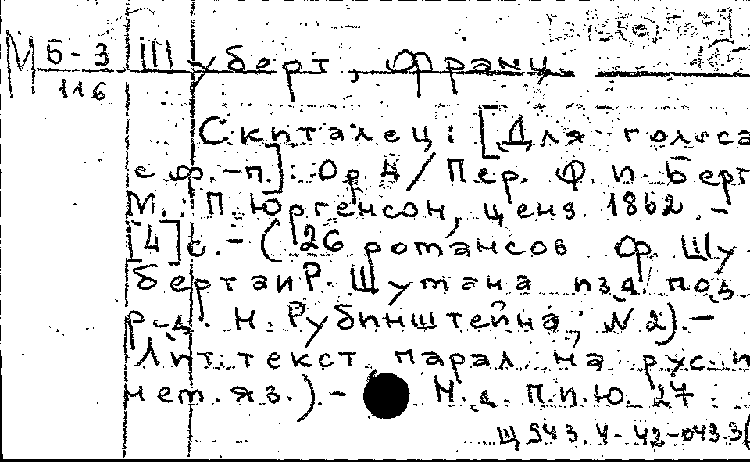 М Б-3 Шуберт, Франц.
116
Скиталец: [Для голоса
с ф.-п.]. Ор 4 / Пер. Ф. п. Берг
М.: П. Юргенсон, ценз. 1862. -
[4] с. - (26 романсов Ф. Шу-
берта и Р. Шумана изд. под
р-д. Н. Рубинштейна; N 2). -
Лит. текст парал. на рус. и
нем. яз.). - Н. д. П. И. Ю. 27
Щ 943.4-42-043.3(